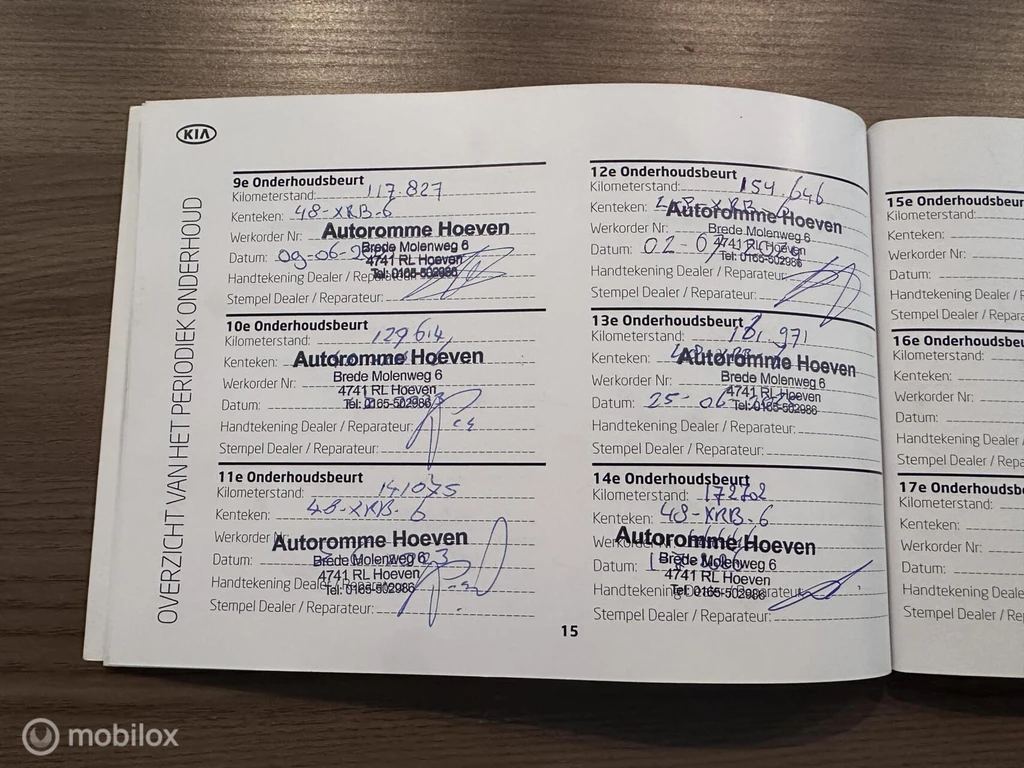 KIA
OVERZICHT VAN HET PERIODIEK ONDERHOUD
9e Onderhoudsbeurt
Kilometerstand: 117.827
Kenteken: 48-XRB-6
Werkorder Nr:
Autoromme Hoeven
Brede Molenweg 6
Datum: 09-06-
4741 RL Hoeven
Tel: 0165-502986
Handtekening Dealer / Reparateur:
Stempel Dealer / Reparateur:
10e Onderhoudsbeurt
Kilometerstand: 129614
Kenteken:
Autoromme Hoeven
Brede Molenweg 6
Werkorder Nr:
4741 RL Hoeven
Datum:
Tel: 0165-502986
Handtekening Dealer / Reparateur:
Stempel Dealer / Reparateur:
11e Onderhoudsbeurt
Kilometerstand: 141075
Kenteken: 48-XRB-6
Werkorder Nr:
Autoromme Hoeven
Datum:
Brede Molenweg 6
4741 RL Hoeven
Handtekening Dealer / Reparateur:
Tel: 0165-502986
Stempel Dealer / Reparateur:
12e Onderhoudsbeurt
Kilometerstand: 154.646
Kenteken: 48-XRB-6
Autoromme Hoeven
Werkorder Nr:
Brede Molenweg 6
Datum: 02-07
4741 RL Hoeven
Tel: 0165-502986
Handtekening Dealer / Reparateur:
Stempel Dealer / Reparateur:
13e Onderhoudsbeurt
Kilometerstand: 161.971
Kenteken:
Autoromme Hoeven
Werkorder Nr:
Brede Molenweg 6
4741 RL Hoeven
Datum: 25-06
Tel: 0165-502986
Handtekening Dealer / Reparateur:
Stempel Dealer / Reparateur:
14e Onderhoudsbeurt
Kilometerstand: 172202
Kenteken: 48-XRB-6
Werkorder Nr:
Autoromme Hoeven
Datum:
Brede Molenweg 6
4741 RL Hoeven
Handtekening Dealer / Reparateur:
Tel: 0165-502986
Stempel Dealer / Reparateur:
15
15e Onderhoudsbeur
Kilometerstand:
Kenteken:
Werkorder Nr:
Datum:
Handtekening Dealer / R
Stempel Dealer / Re
16e Onderhoudsbeu
Kilometerstand:
Kenteken:
Werkorder Nr:
Datum:
Handtekening Dealer /
Stempel Dealer / Rep
17e Onderhoudsb
Kilometerstand:
Kenteken:
Werkorder Nr:
Datum:
Handtekening Deale
Stempel Dealer / Re
mobilox